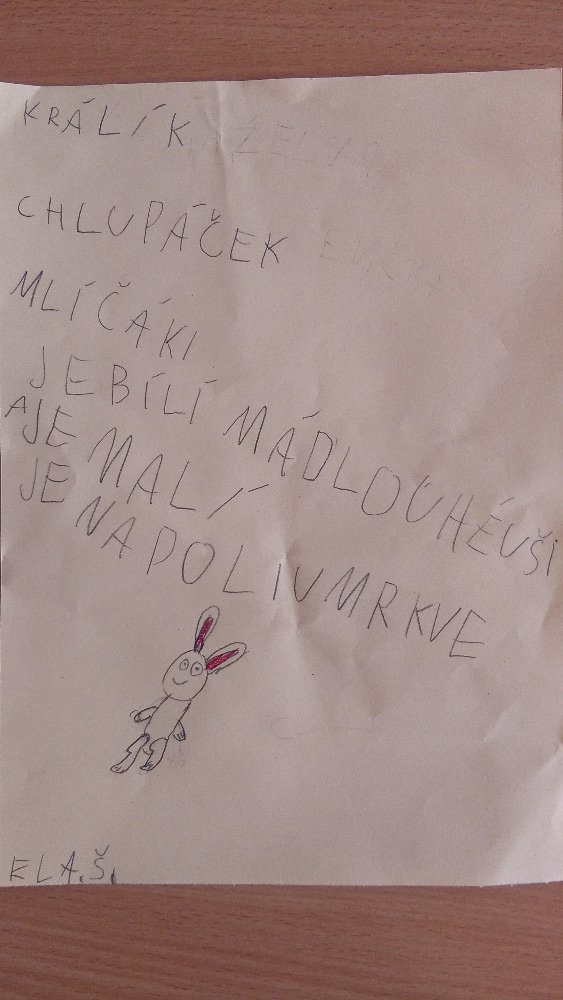 KRÁLÍK
CHLUPÁČEK
MLÍČÁKI
JE BÍLÍ MÁ DLOUHÉ UŠI
A JE MALÍ
JE NA POLI U MRKVE
ELA.Š.